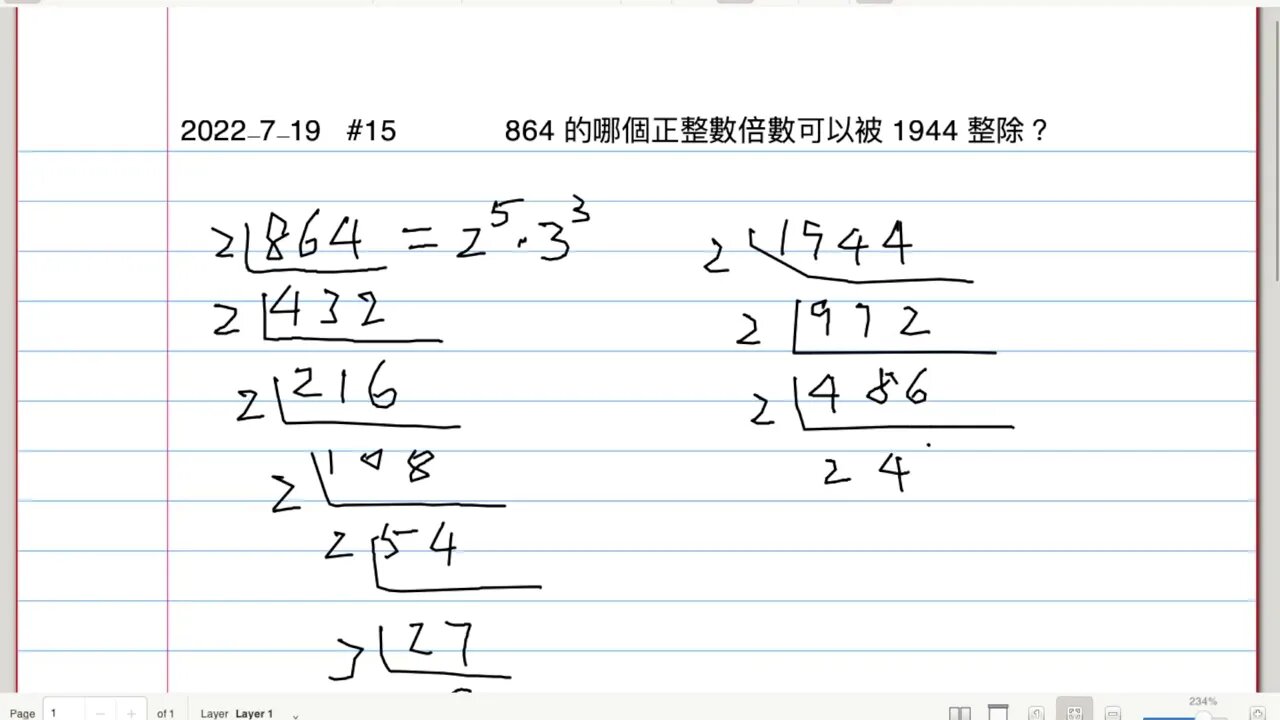 2022-7-19 #15 864 的哪個正整數倍數可以被 1944 整除？
2 864 = 2^5 · 3^3
2 432
2 216
2 108
2 54
3 27
2 1944
2 972
2 486
2 4
Page 1 of 1 Layer Layer 1 234%